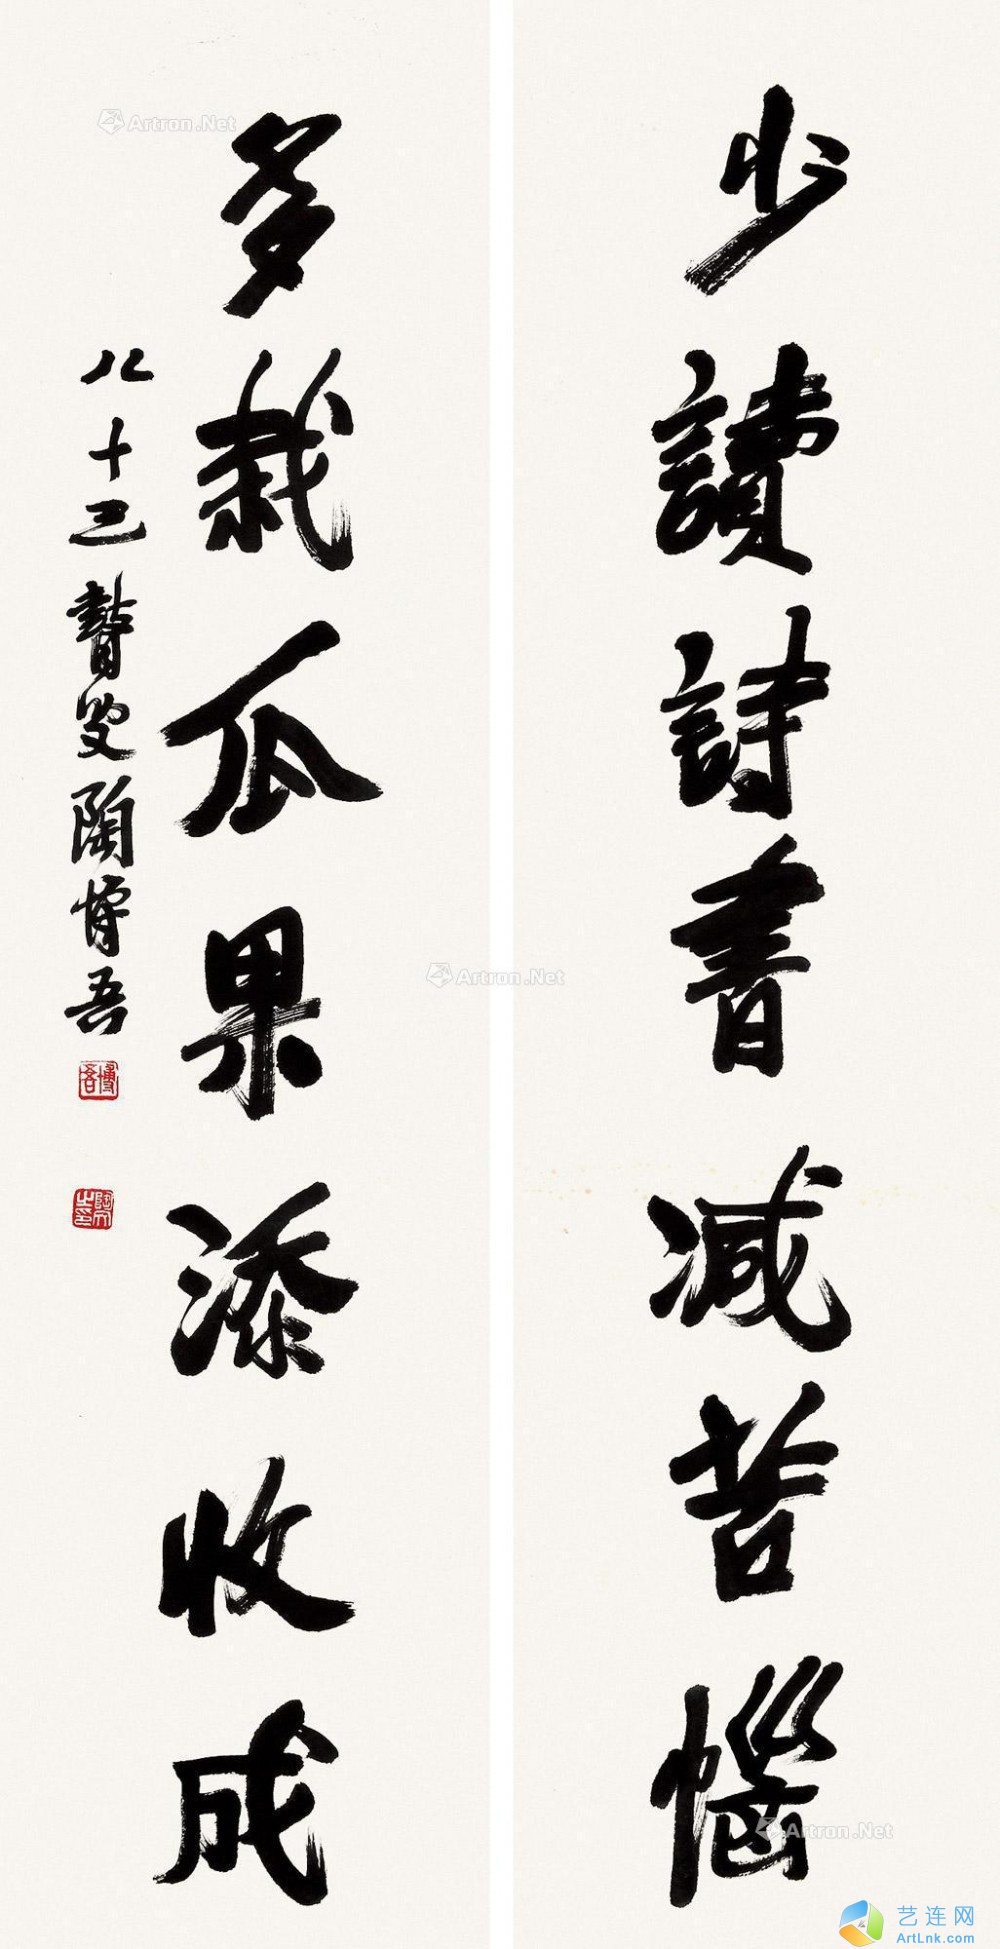 少讀詩書减苦惱
多栽瓜果添收成
八十三瞽叟陶博吾
博吾
陶文之印
Artron.Net
Artron.Net
Artron.Net
艺连网
ArtLnk.com